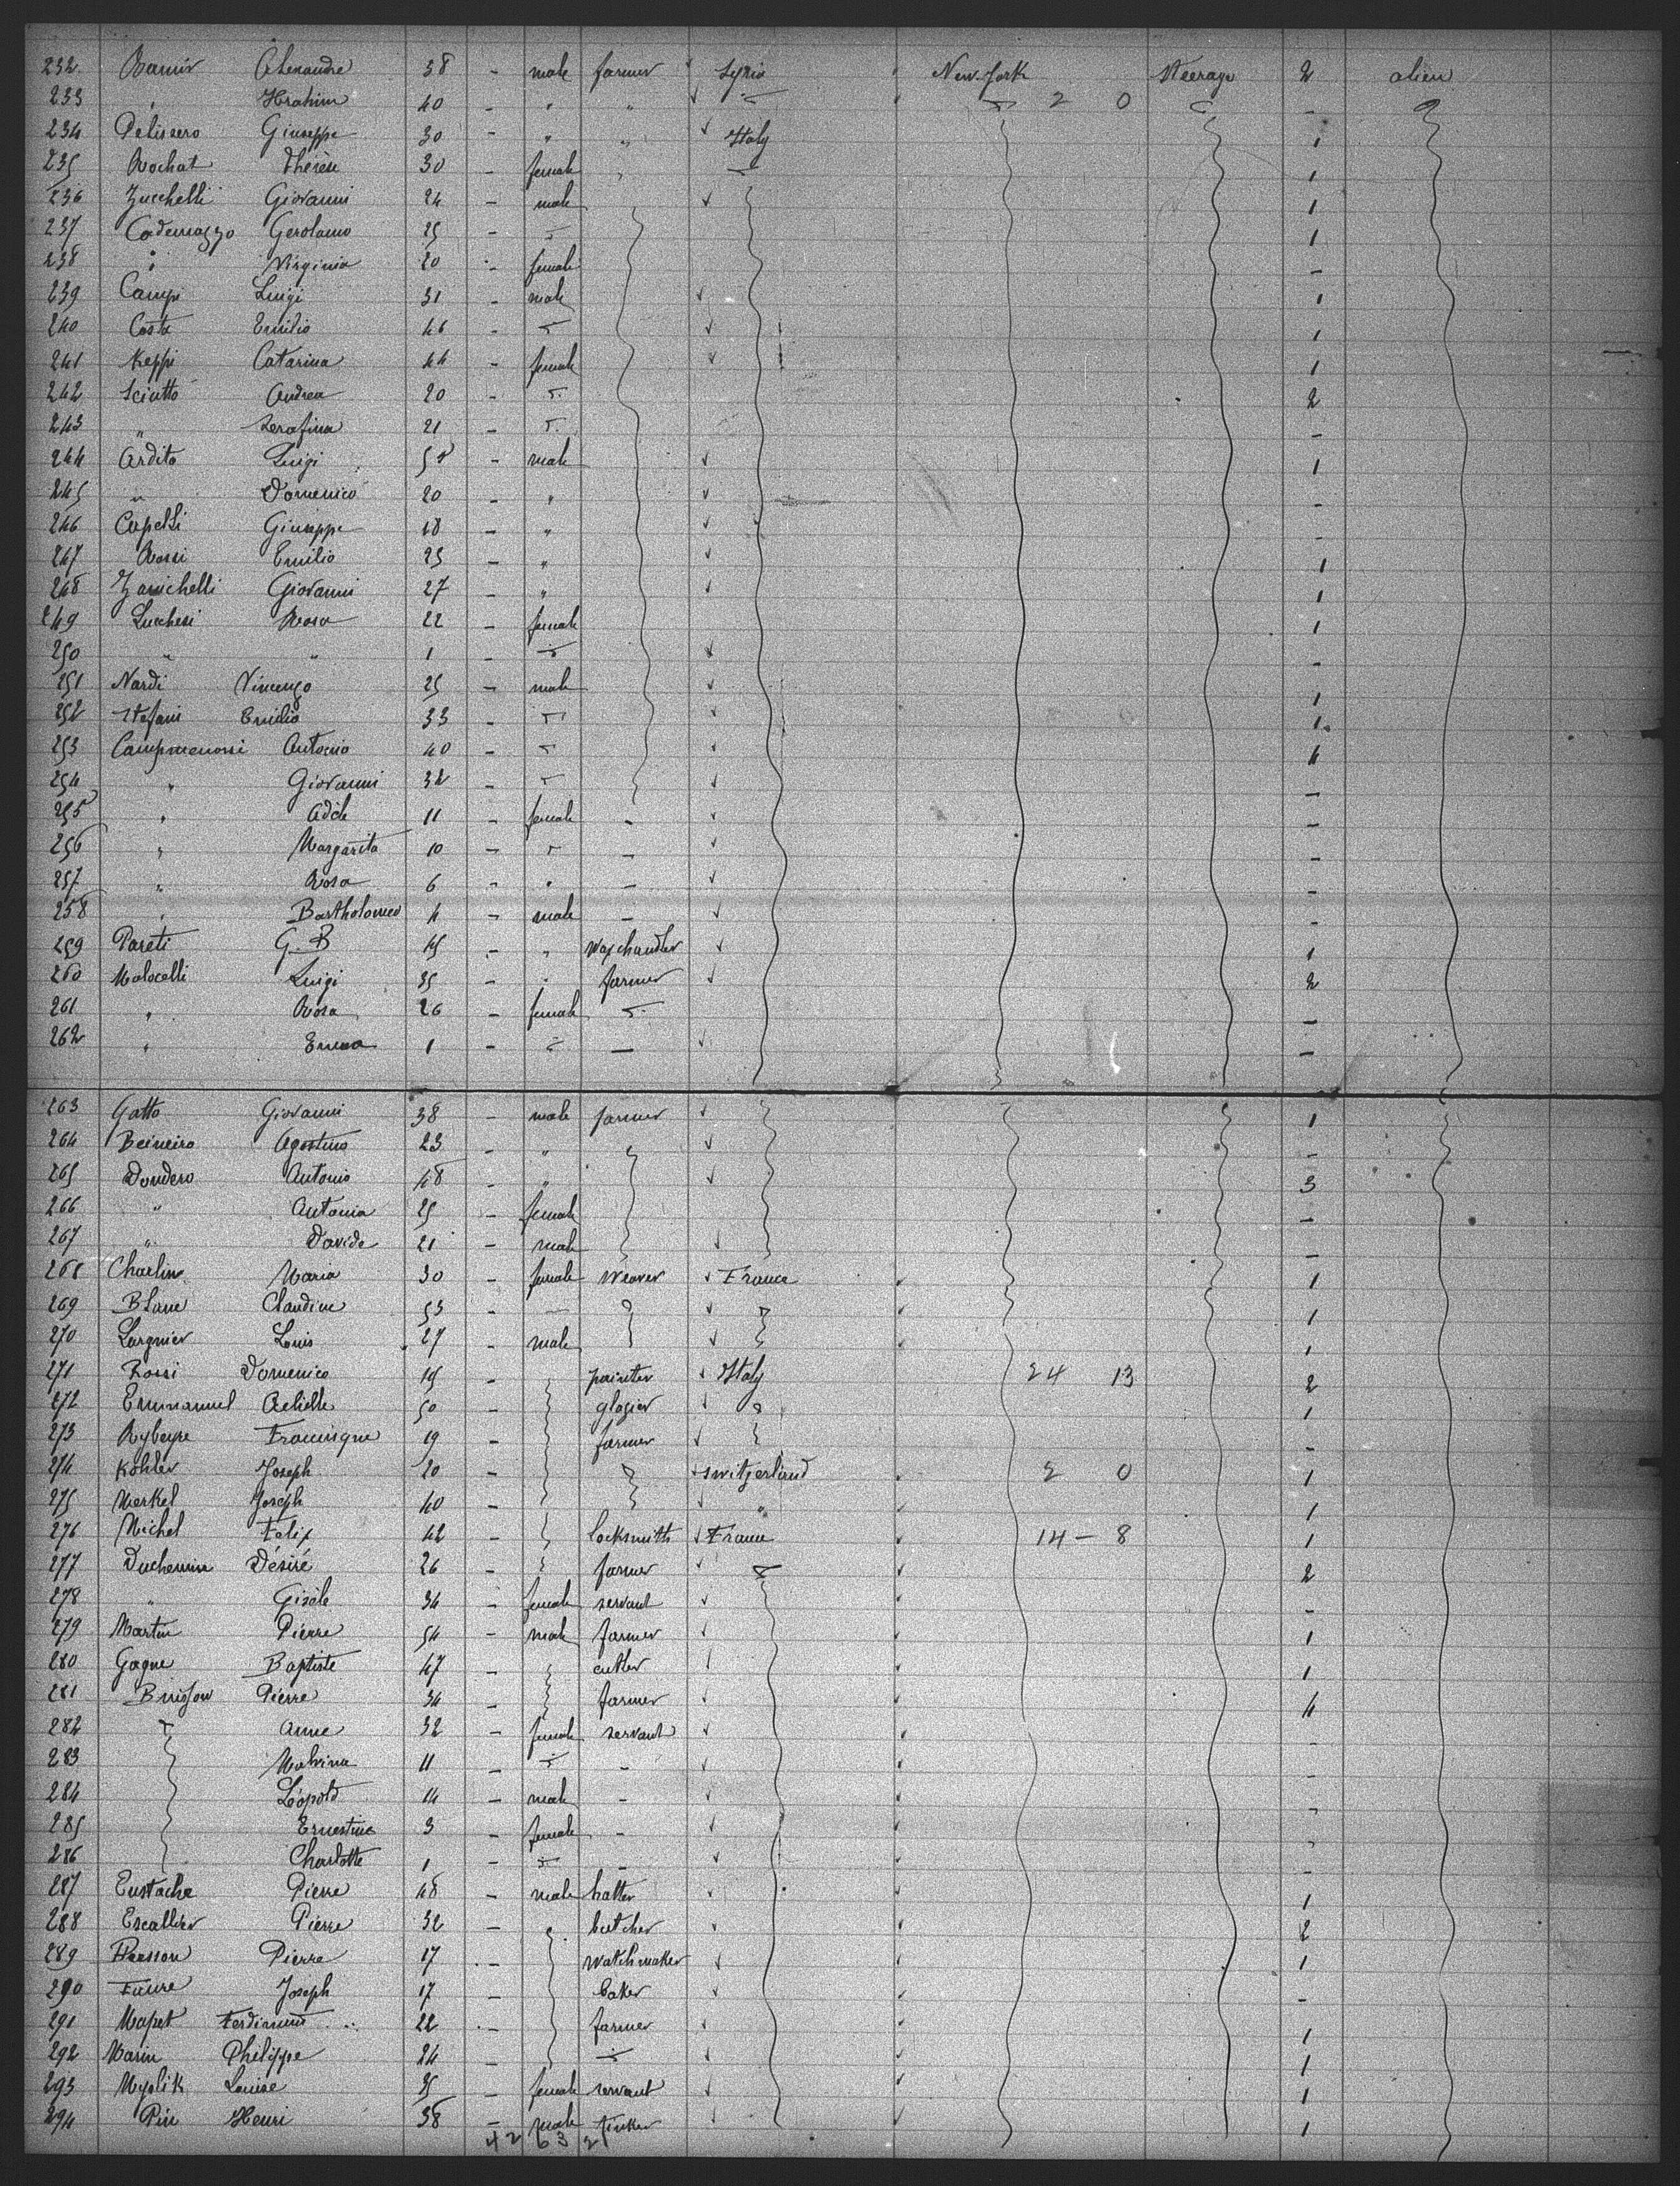 232 Ramir Alexandre 38 - male farmer ✓ Syria New-York Steerage 2 alien
233 " Ibrahim 40 - " " ✓ 2 0 -
234 Pelissero Giuseppe 30 - " " ✓ Italy 1
235 Rochat Thérèse 30 - female " 1
236 Zucchelli Giovanni 24 - male ✓ 1
237 Cademazzo Gerolamo 25 - 1
238 " Virginia 20 - female -
239 Campi Luigi 31 - male ✓ 1
240 Costa Emilio 46 - ✓ 1
241 Keppi Catarina 44 - female ✓ 1
242 Sciutto Andrea 20 - 2
243 " Serafina 21 - -
244 Ardito Luigi - male ✓ 1
245 " Domenico 20 - " ✓ -
246 Capelli Giuseppe 18 - " ✓ -
247 Rossi Emilio 25 - " ✓ 1
248 Zanichelli Giovanni 27 - " ✓ 1
249 Lucchesi Rosa 22 - female 1
250 " " 1 - ✓ -
251 Nardi Vincenzo 25 - male ✓ 1
252 Stefani Emilio 33 - ✓ 1
253 Antonio 40 - ✓ 4
254 " Giovanni 32 - ✓ -
255 " Adèle 11 - female - ✓ -
256 " Margarita 10 - - ✓ -
257 " Rosa 6 - " - ✓ -
258 " Bartholomeo 4 - male - ✓ -
259 Pareti G. B 45 - " Waxchandler ✓ 1
260 Molocelli Luigi 35 - " farmer ✓ 2
261 " Rosa 26 - female -
262 " Emma 1 - - ✓ -
263 Gatto Giovanni 38 - male farmer ✓ 1
264 Beineiro Agostino 23 - " ✓ -
265 Dondero Antonio 48 - " ✓ 3
266 " Antonia 25 - female -
267 " Davide 21 - male ✓ -
268 Charlin Maria 30 - female Weaver ✓ France ✓ 1
269 Blanc Claudine 53 - ✓ ✓ 1
270 Largnier Louis 27 - male ✓ ✓ 1
271 Rossi Domenico 45 - painter ✓ Italy 24 13 2
272 Emmanuel Achille 50 - glazier ✓ 1
273 Francisque 19 - farmer ✓ -
274 Kohler Joseph 20 - Switzerland ✓ 2 0 1
275 Merkel Joseph 40 - ✓ " ✓ 1
276 Michel Felix 42 - locksmith ✓ France ✓ 14 - 8 1
277 Duchemin Désiré 26 - farmer ✓ ✓ 2
278 " Gisèle 34 - female servant ✓ ✓ -
279 Martin Pierre 54 - male farmer ✓ ✓ 1
280 Gagne Baptiste 47 - cutler ✓ ✓ 1
281 Pierre 34 - farmer ✓ ✓ 4
282 Anne 32 - female servant ✓ ✓ -
283 Malvina 11 - - ✓ ✓ -
284 Léopold 14 - male - ✓ ✓ -
285 Ernestine 3 - female - ✓ ✓ -
286 Charlotte 1 - - ✓ ✓ -
287 Eustache Pierre 48 - male hatter ✓ ✓ 1
288 Escallier Pierre 32 - " butcher ✓ ✓ 2
289 Pierre 17 - Watchmaker ✓ ✓ 1
290 Faure Joseph 17 - baker ✓ ✓ -
291 Mapet Ferdinand 22 - farmer ✓ ✓ 1
292 Marin Philippe 24 - ✓ ✓ 1
293 Louise 35 - female servant ✓ ✓ 1
294 Pin Henri 38 - male tinker ✓ ✓ 1
42 63 21